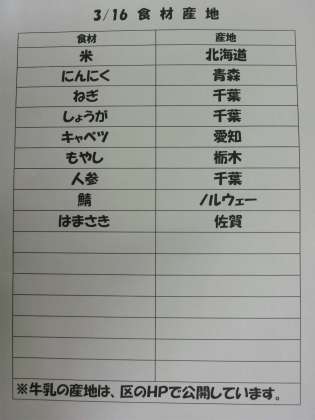 3/16 食材産地
食材 産地
米 北海道
にんにく 青森
ねぎ 千葉
しょうが 千葉
キャベツ 愛知
もやし 栃木
人参 千葉
鯖 ノルウェー
はまさき 佐賀
※牛乳の産地は、区のHPで公開しています。